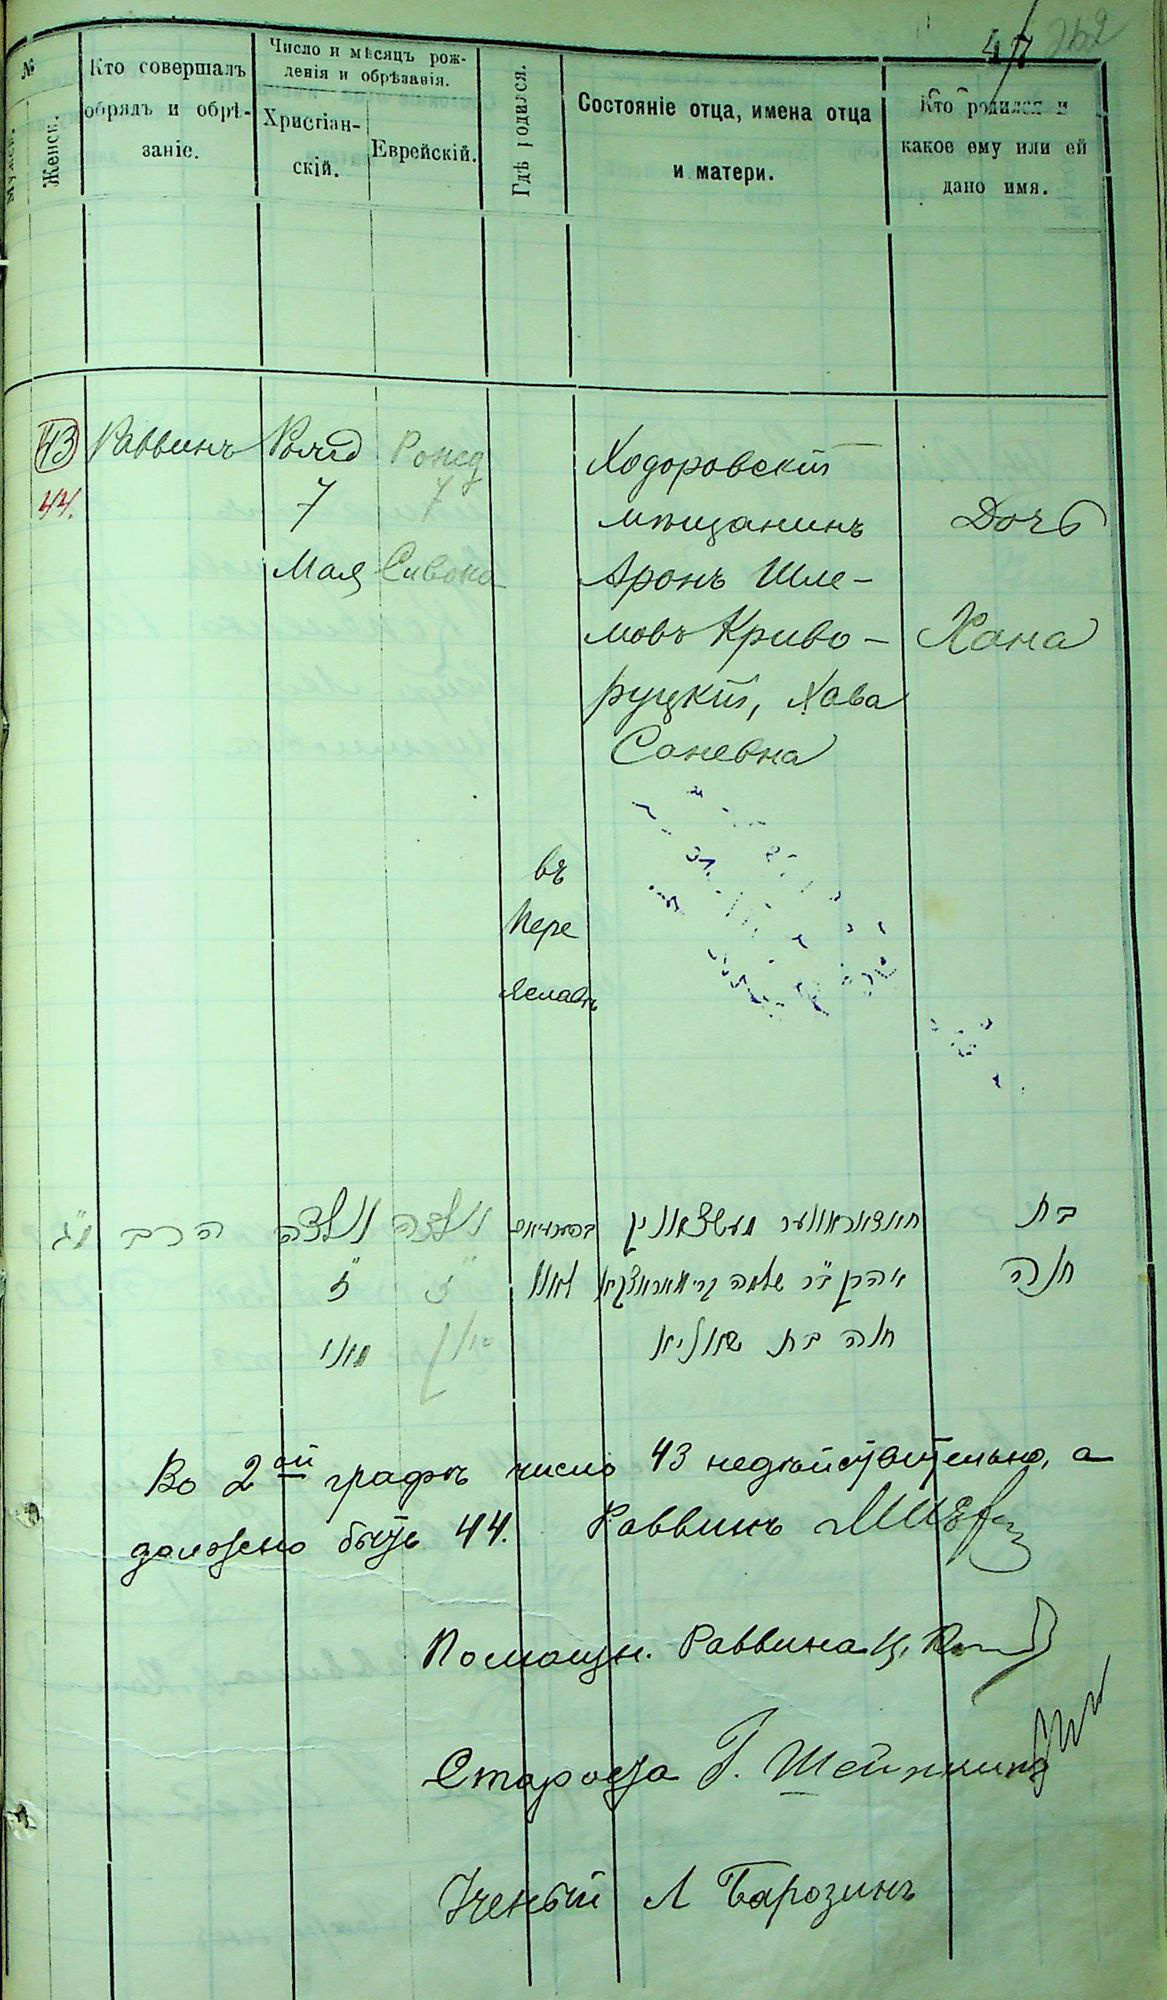 47 262
№
Мужск.
Женск.
Кто совершалъ
обрядъ и обрѣ-
заніе.
Число и мѣсяцъ рож-
денія и обрѣзанія.
Христіан-
скій.
Еврейскій.
Гдѣ родился.
Состояніе отца, имена отца
и матери.
Кто родился и
какое ему или ей
дано имя.
43
44.
Раввинъ
Рожд
7
Мая
Рожд
7
Сивона
въ
Пере
яславѣ
Ходоровскій
мѣщанинъ
Аронъ Шле-
мовъ Криво-
руцкій, Хава
Саневна
Дочь
Хана
מ"ג
הרב
נולדה
ז
מאי
נולדה
ז
סיון
מעשצאנין
אהרן ב"ר שלמה
חוה בת
בת
חנה
Во 2ой графѣ число 43 недѣйствительно, а
должно быть 44. Раввинъ
Помощн. Раввина Ц.
Староста Г.
Ученый Л Барозинъ